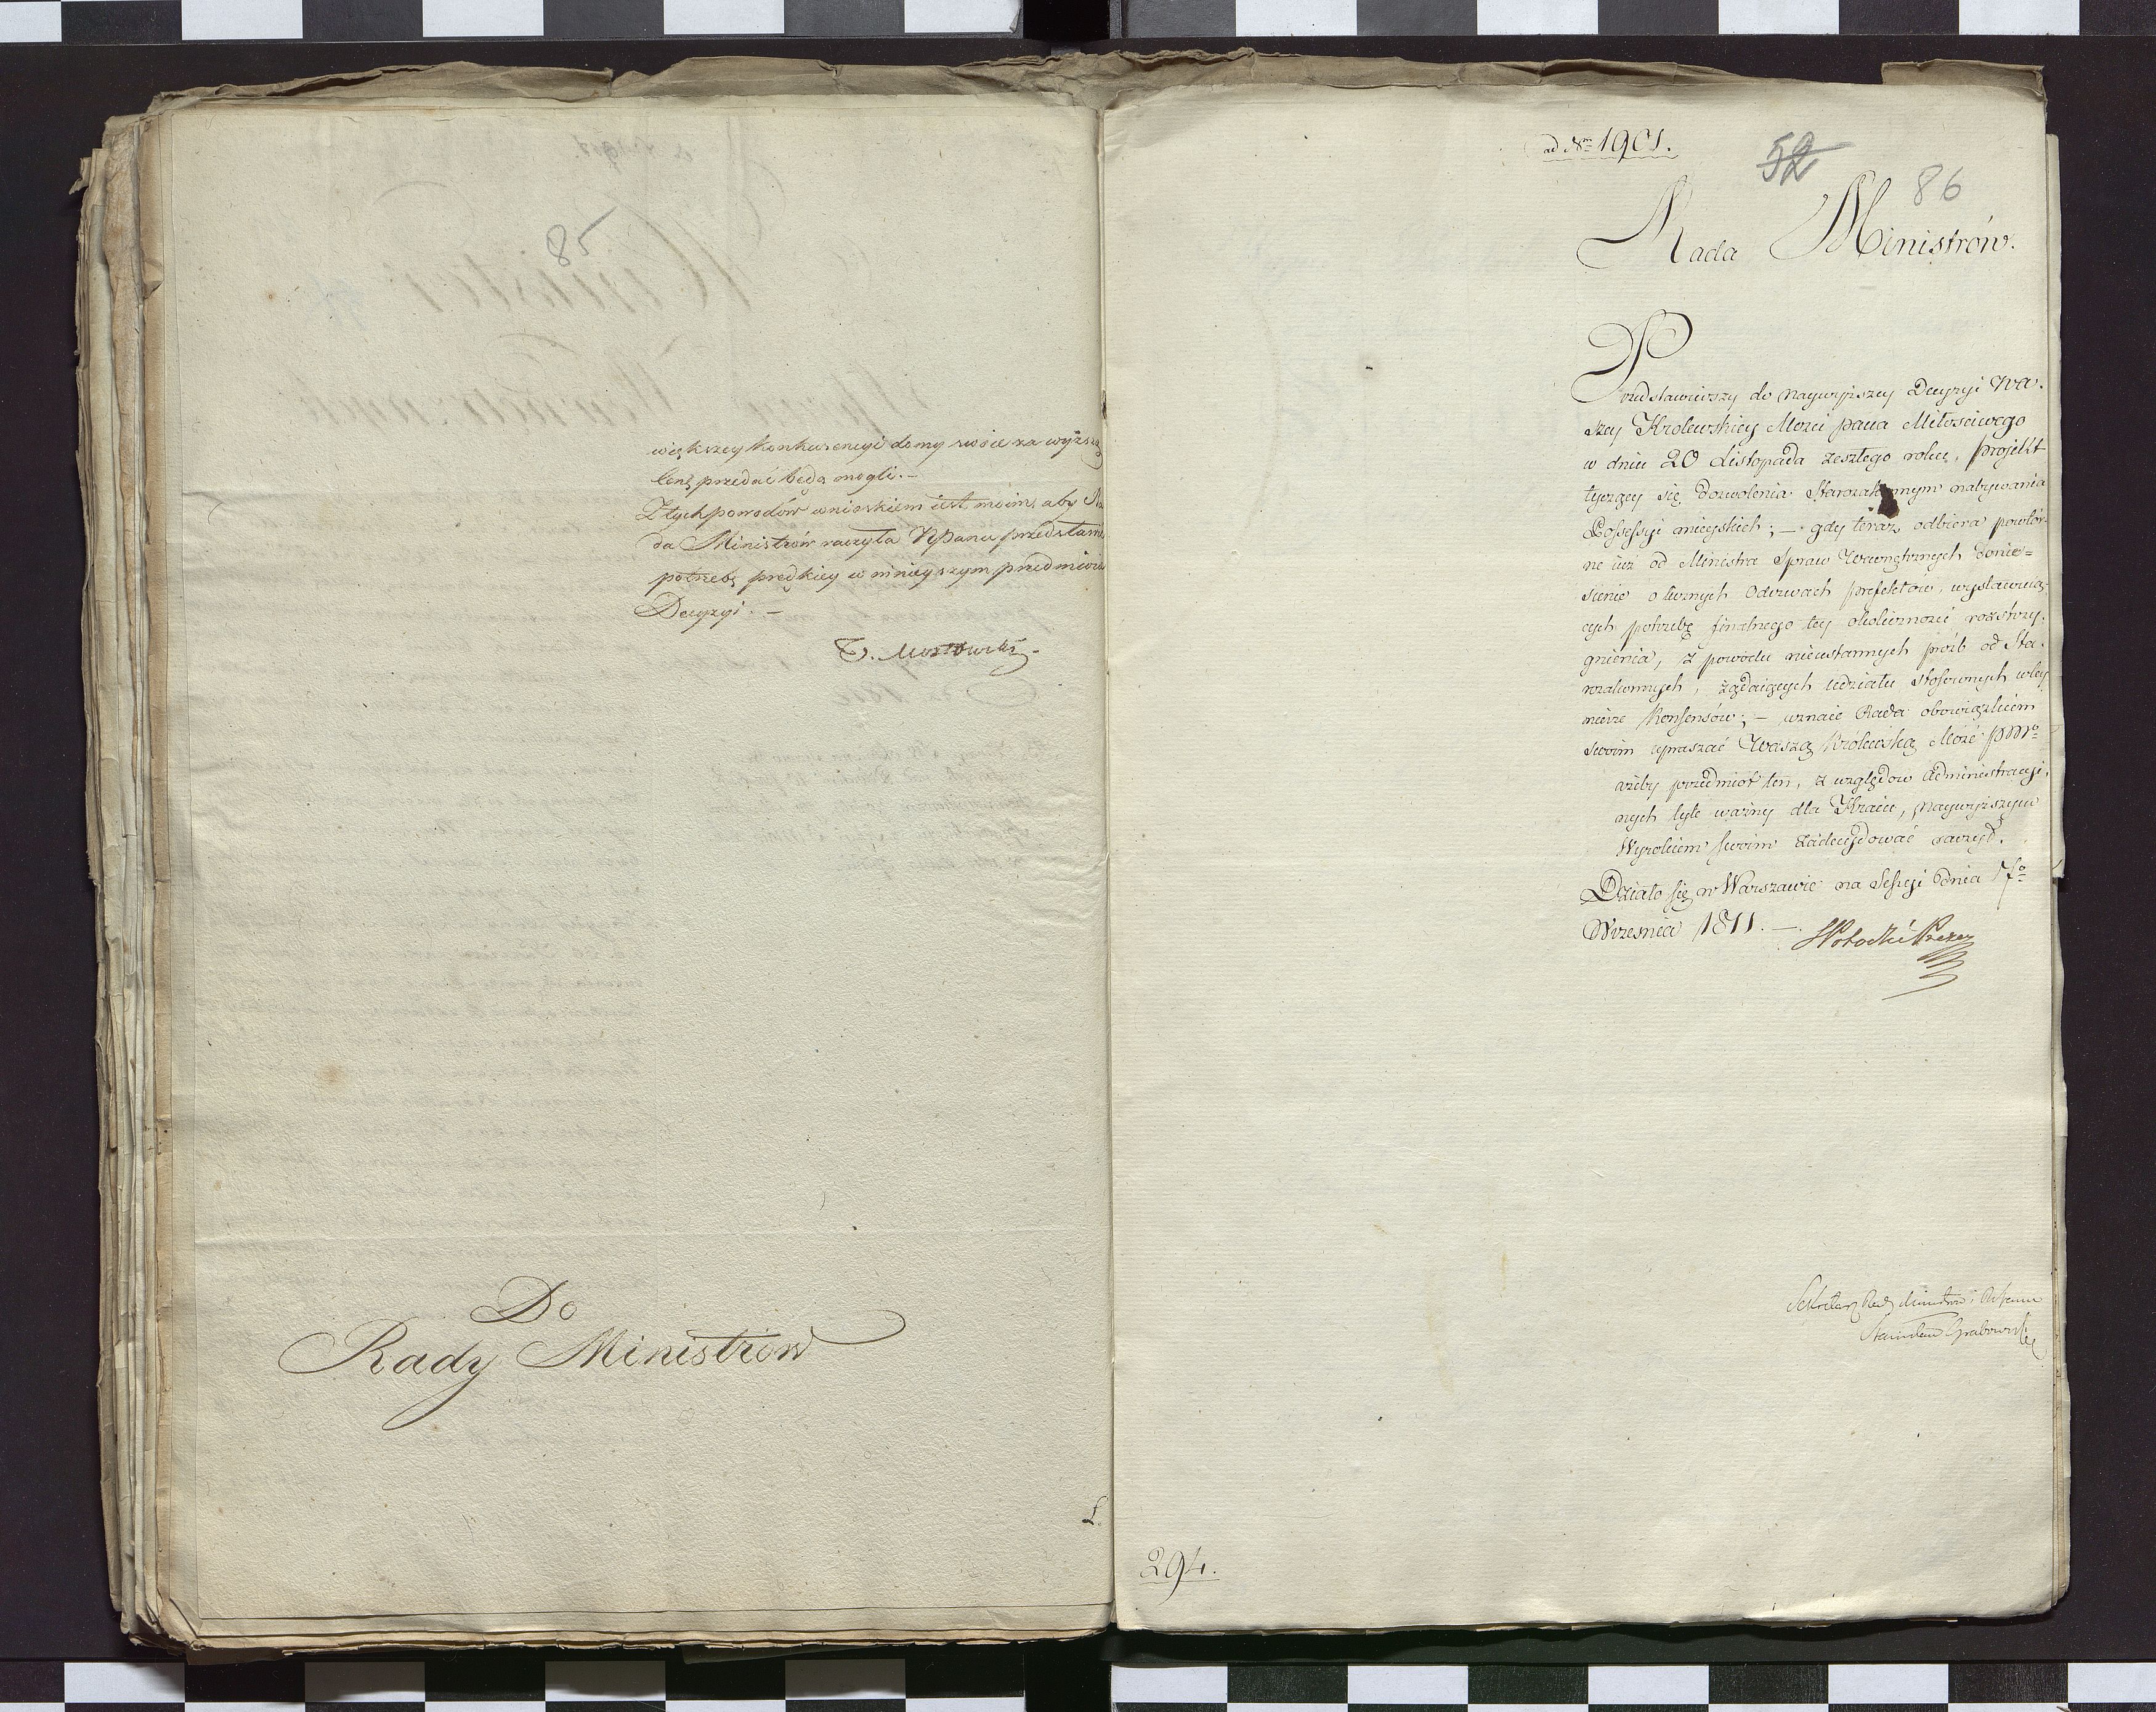 85
większey konkurencyi domy swoie za wyższą
Cenę przedać będą mogli. –
Z tych powodów wnioskiem iest moim, aby Ra
da Ministrów raczyła NPanu przedstawić
potrzebę prędkiey w ninieyszym przedmiocie
Decyzyi. –
T. Mostowski
Do
Rady Ministrów
L.
ad Nrm 1901.
52
86
Rada Ministrów.
Przedstawiwszy do Naywyższey Decyzyi Wa-
szey Krolewskiey Mości Pana Miłościwego
w dniu 20 Listopada zeszłego roku, projekt
tyczący się dozwolenia Starozakonnym nabywania
Possessyi mieyskich; – gdy teraz odbiera powtór-
nie iuż od Ministra Spraw Wewnętrznych donie=
sienie o licznych Odezwach Prefektów, wystawuią-
cych potrzebę finalnego tey okoliczności rozstrzy-
gnienia, z powodu nieustannych prośb od Sta-
rozakonnych, żądaiących udziału stosownych w tey
mierze Konsensów; – uznaie Rada obowiązkiem
swoim upraszać Waszą Królewską Mość PMo
ażeby przedmiot ten, z względow Administracyi-
nych tyle ważny dla Kraiu, Naywyższym
Wyrokiem swoim zadecydować raczył.
Działo się w Warszawie na Sessyi dnia 17o
Września 1811. –
SPotocki Prezes
Sekretarz Rady Ministrów i Rstanu
Stanisław Grabowski
294.